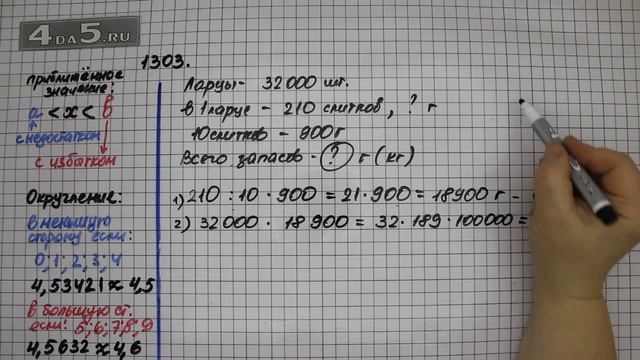 4DA5.RU
1303.
приближённое
значение:
a < x < b
с недостатком
с избытком
Округление:
в меньшую
сторону если:
0; 1; 2; 3; 4
4,53421 ≈ 4,5
в большую ст.
если: 5; 6; 7; 8; 9
4,5632 ≈ 4,6
Ларцы - 32000 шт.
в 1 ларце - 210 слитков, ? г
10 слитков - 900 г
Всего запасов - ? г (кг)
1) 210 : 10 · 900 = 21 · 900 = 18900 г -
2) 32000 · 18900 = 32 · 189 · 100000 =